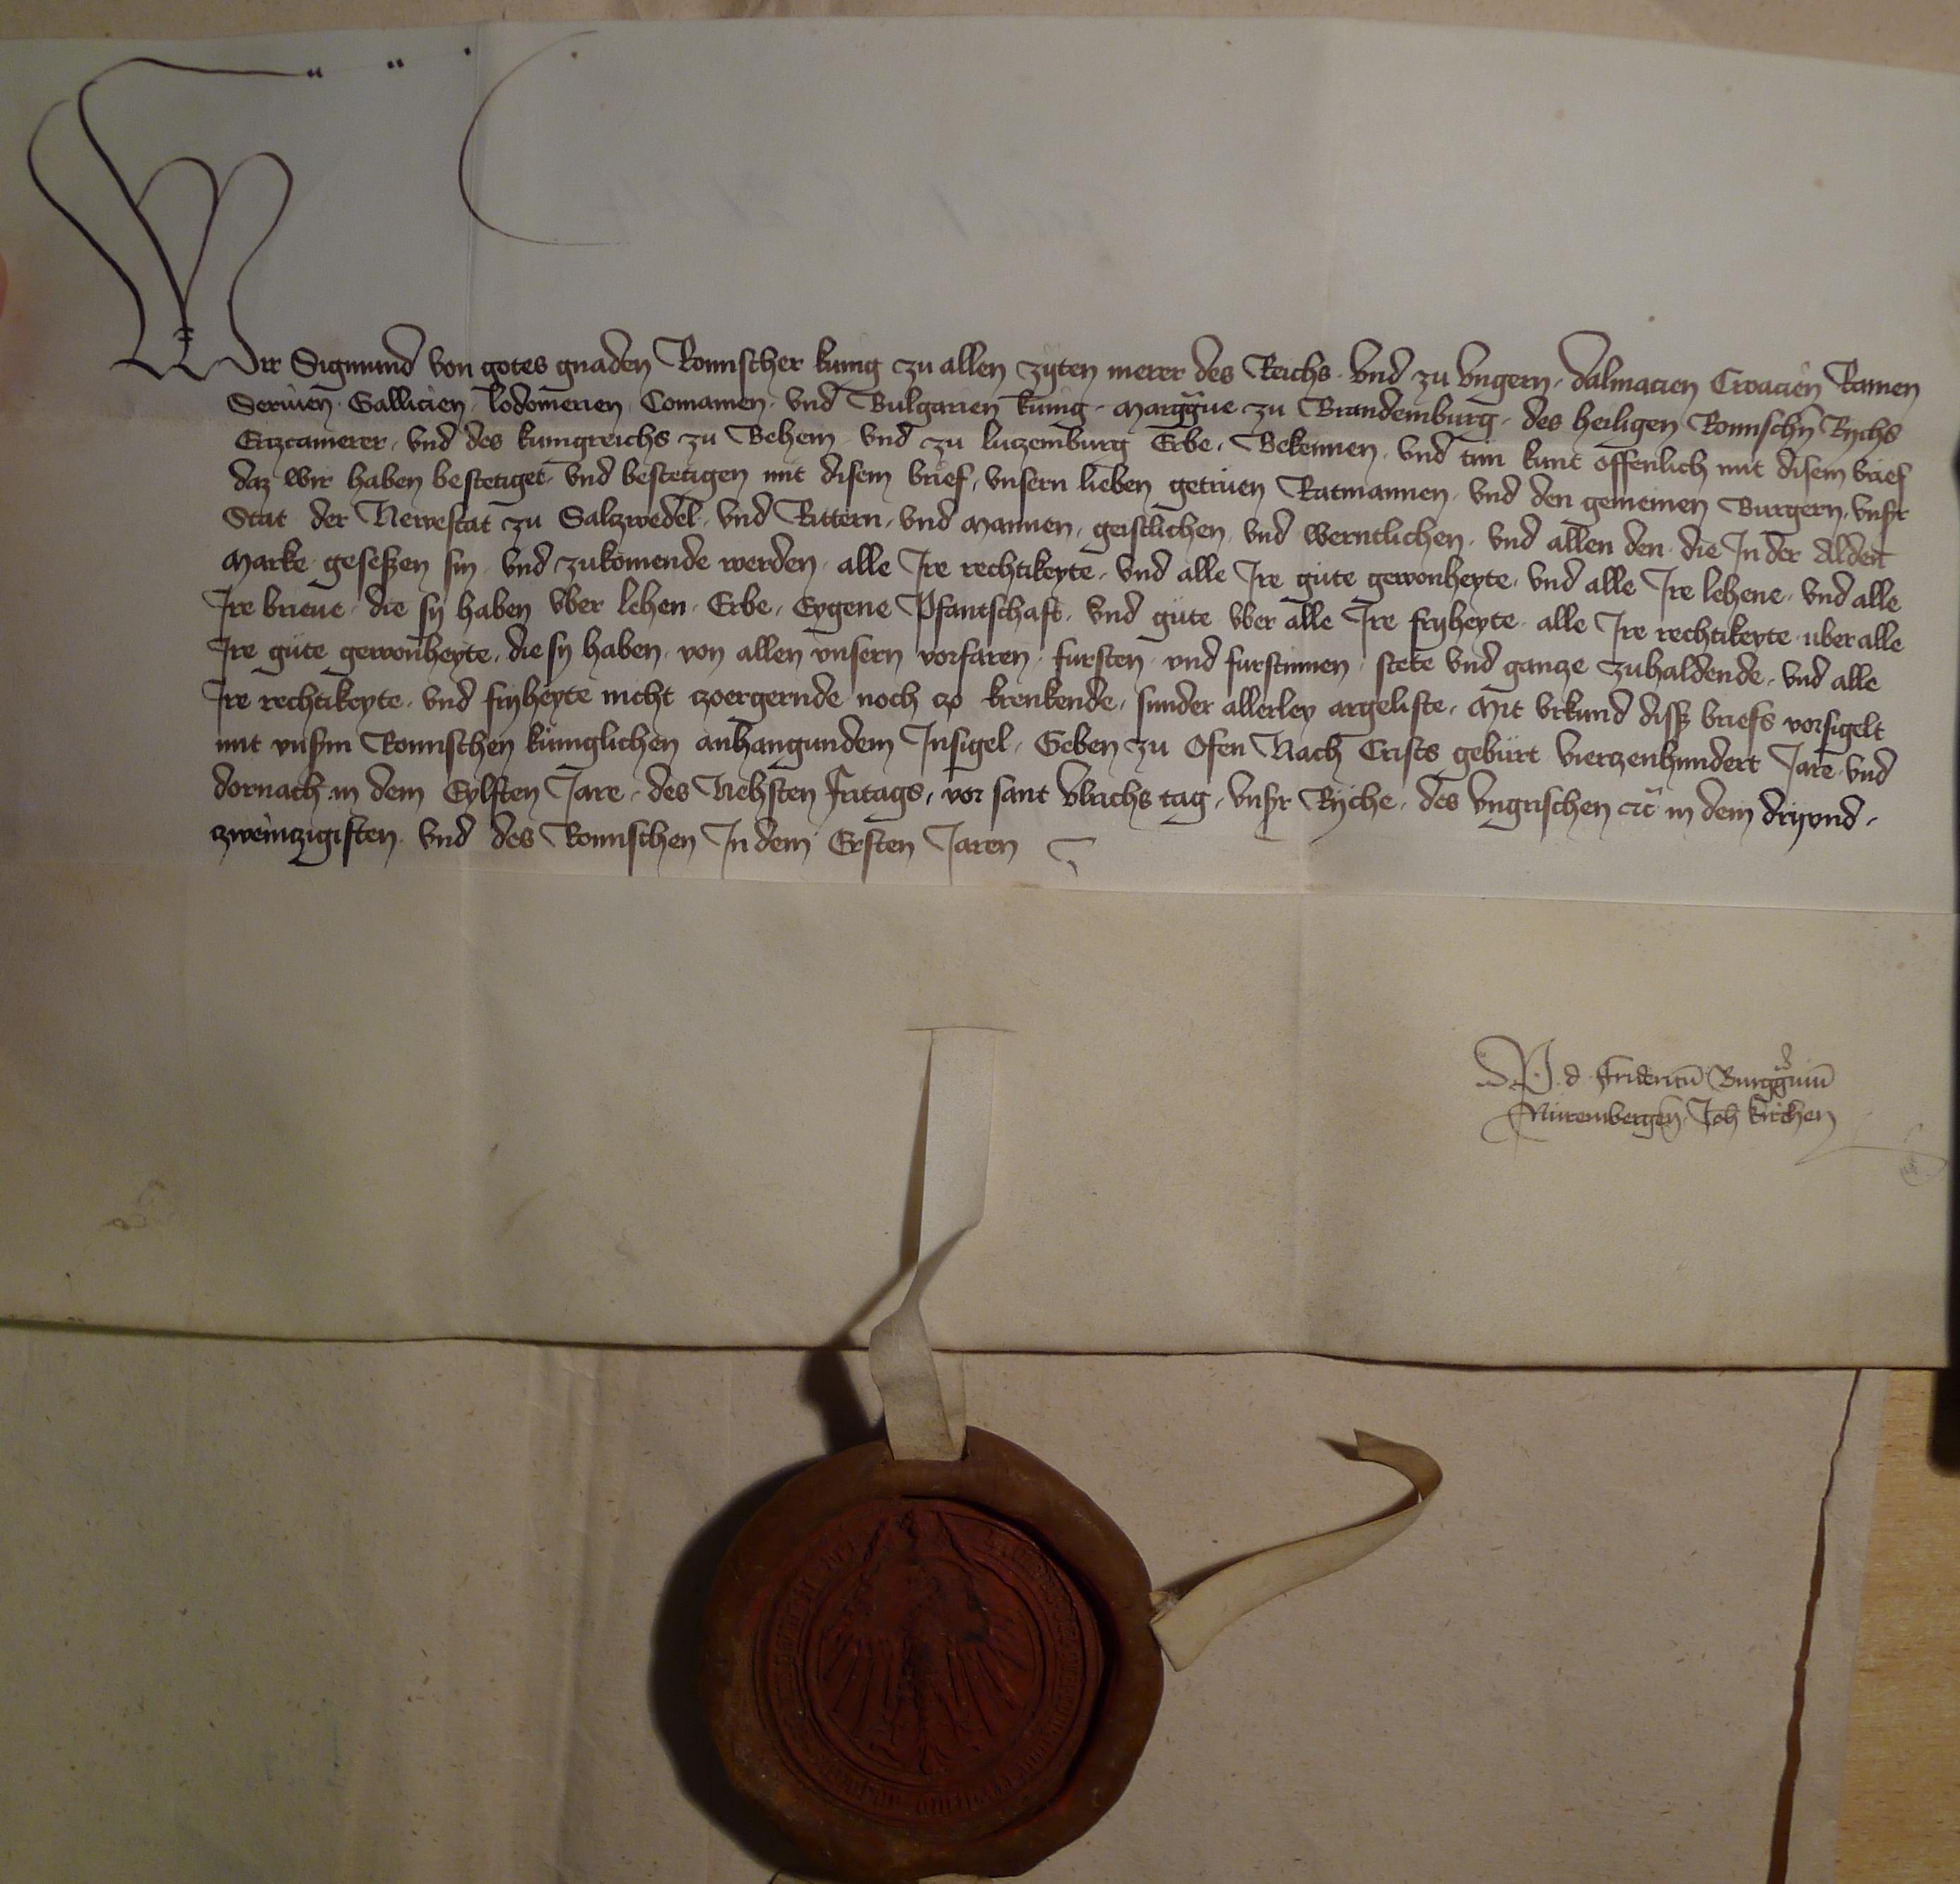 Wir Sigmund von gotes gnaden Romischer kunig zu allen zyten merer des Reichs vnd zu vngern, dalmacien Croacien Ramen
Seruien Gallicien lodomerien Comanien vnd Bulgarien kunig marggue zu Brandemburg, des heiligen Romischn Rychs
Ertzcamerer, vnd des kunigreichs zu Behem vnd zu lutzemburg Erbe, Bekennen vnd tun kunt offenlich mit disem brief
daz wir haben bestetiget vnd bestetigen mit disem brief, vnsern lieben getrüen Ratmannen vnd den gemeinen Burgern, vnsr
Stat der Newestat zu Saltzwedel vnd Rittern, vnd mannen, geistlichen vnd werntlichen vnd allen den die In der Alden
marke geseßen sin vnd zukomende werden alle Ire rechtikeyte, vnd alle Ire güte gewonheyte, vnd alle Ire lehene, vnd alle
Ire brieue die sy haben vber lehen Erbe, Eygene Pfantschaft, vnd güte vber alle Ire fryheyte alle Ire rechtikeyte uber alle
Ire güte gewonheyte, die sy haben von allen vnsern vorfaren fursten vnd furstinnen stete vnd gantze zuhaldende, vnd alle
Ire rechtikeyte, vnd fryheyte nicht czoergernde noch czo krenkende, sunder allerley argeliste, Mit vrkund disß briefs vorsigelt
mit vnsrm Romischen küniglichen anhangundem Insigel, Geben zu Ofen Nach Crists gebürt viertzenhundert Jare vnd
dornach in dem Eylften Jare, des Nehsten fritags, vor sant Vlrichs tag, vnsr Ryche, des vngrischen etc in dem dryvnd,
zweintzigisten vnd des Romischen In dem Ersten Jaren
P. d. fridericū Burggͣuiū
Nürembergen̄ Joh kirchen